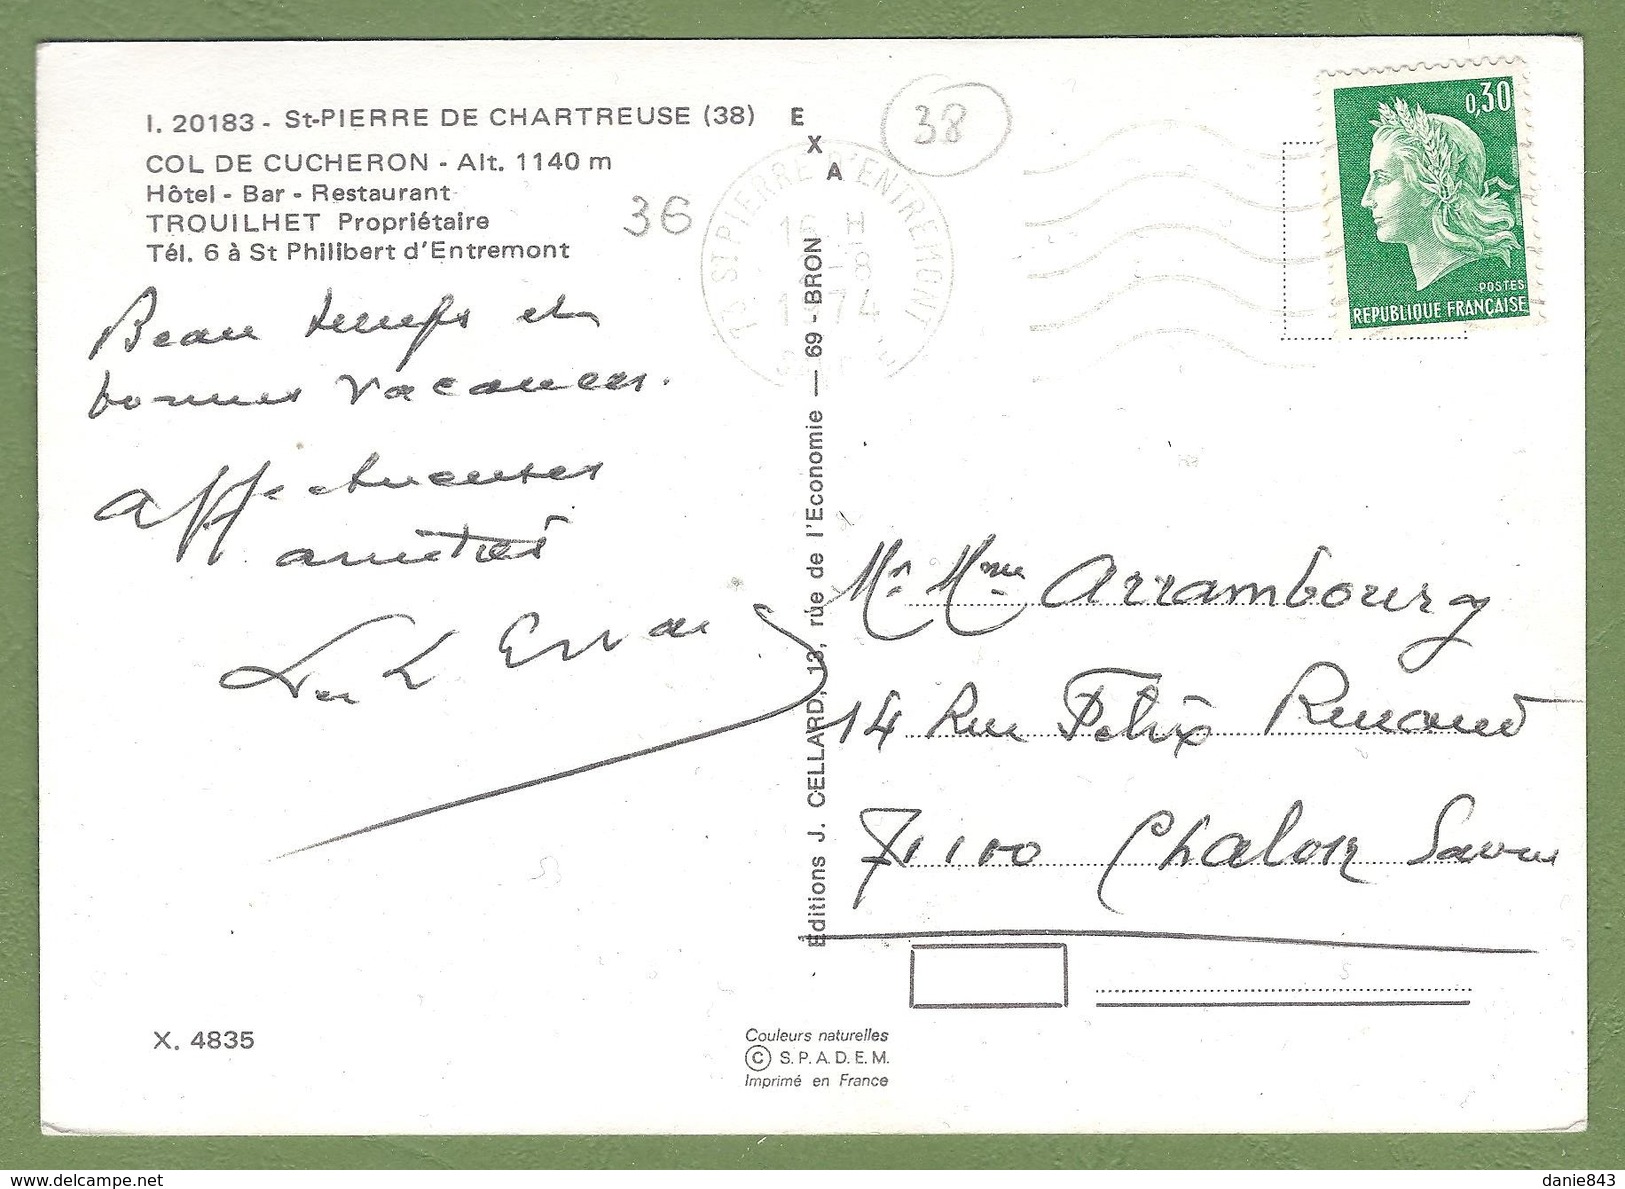 I. 20183 - St-PIERRE DE CHARTREUSE (38)
COL DE CUCHERON - Alt. 1140 m
Hôtel - Bar - Restaurant
TROUILHET Propriétaire
Tél. 6 à St Philibert d'Entremont
36
38
EXA
73 ST PIERRE D'ENTREMONT
16 H
-8
1974
0,30
POSTES
REPUBLIQUE FRANÇAISE
Beau temps et
bonnes vacances.
Affectueuses
amitiés
Editions J. CELLARD, 13, rue de l'Economie — 69 - BRON
Mr Mme Arrambourg
14 Rue Felix Renaud
71100 Chalon Saone
X. 4835
Couleurs naturelles
© S.P.A.D.E.M.
Imprimé en France
danie843